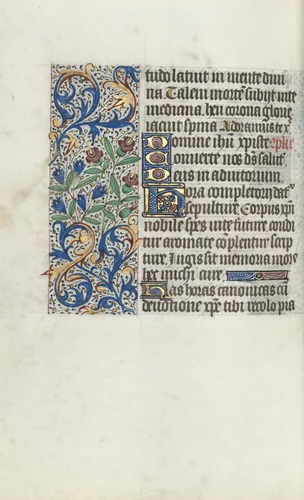 tudo latuit in mente divi
na Talem mortē subiit vite
medicina heu corona glorie
iacuit spinis Adoramus te x
Domine ihū xpriste
Converte nos d's salut
Deus in adiutorium
Hora completorii da
sepulture Corpus xpī
nobile spes vite future condi
tur aromate cōplentur scrip
ture Jugis sit memoria mor
michi aue
Has horas canonicas cū
deuotione xpē tibi recolo pia